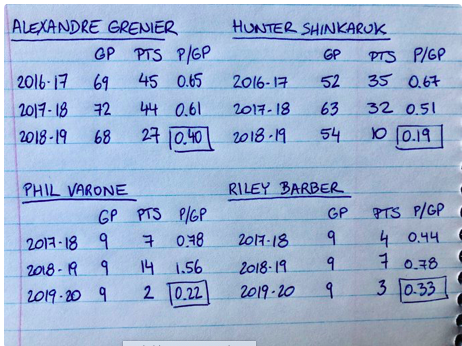 ALEXANDRE GRENIER
GP PTS P/GP
2016-17 69 45 0.65
2017-18 72 44 0.61
2018-19 68 27 0.40
HUNTER SHINKARUK
GP PTS P/GP
2016-17 52 35 0.67
2017-18 63 32 0.51
2018-19 54 10 0.19
PHIL VARONE
GP PTS P/GP
2017-18 9 7 0.78
2018-19 9 14 1.56
2019-20 9 2 0.22
RILEY BARBER
GP PTS P/GP
2017-18 9 4 0.44
2018-19 9 7 0.78
2019-20 9 3 0.33